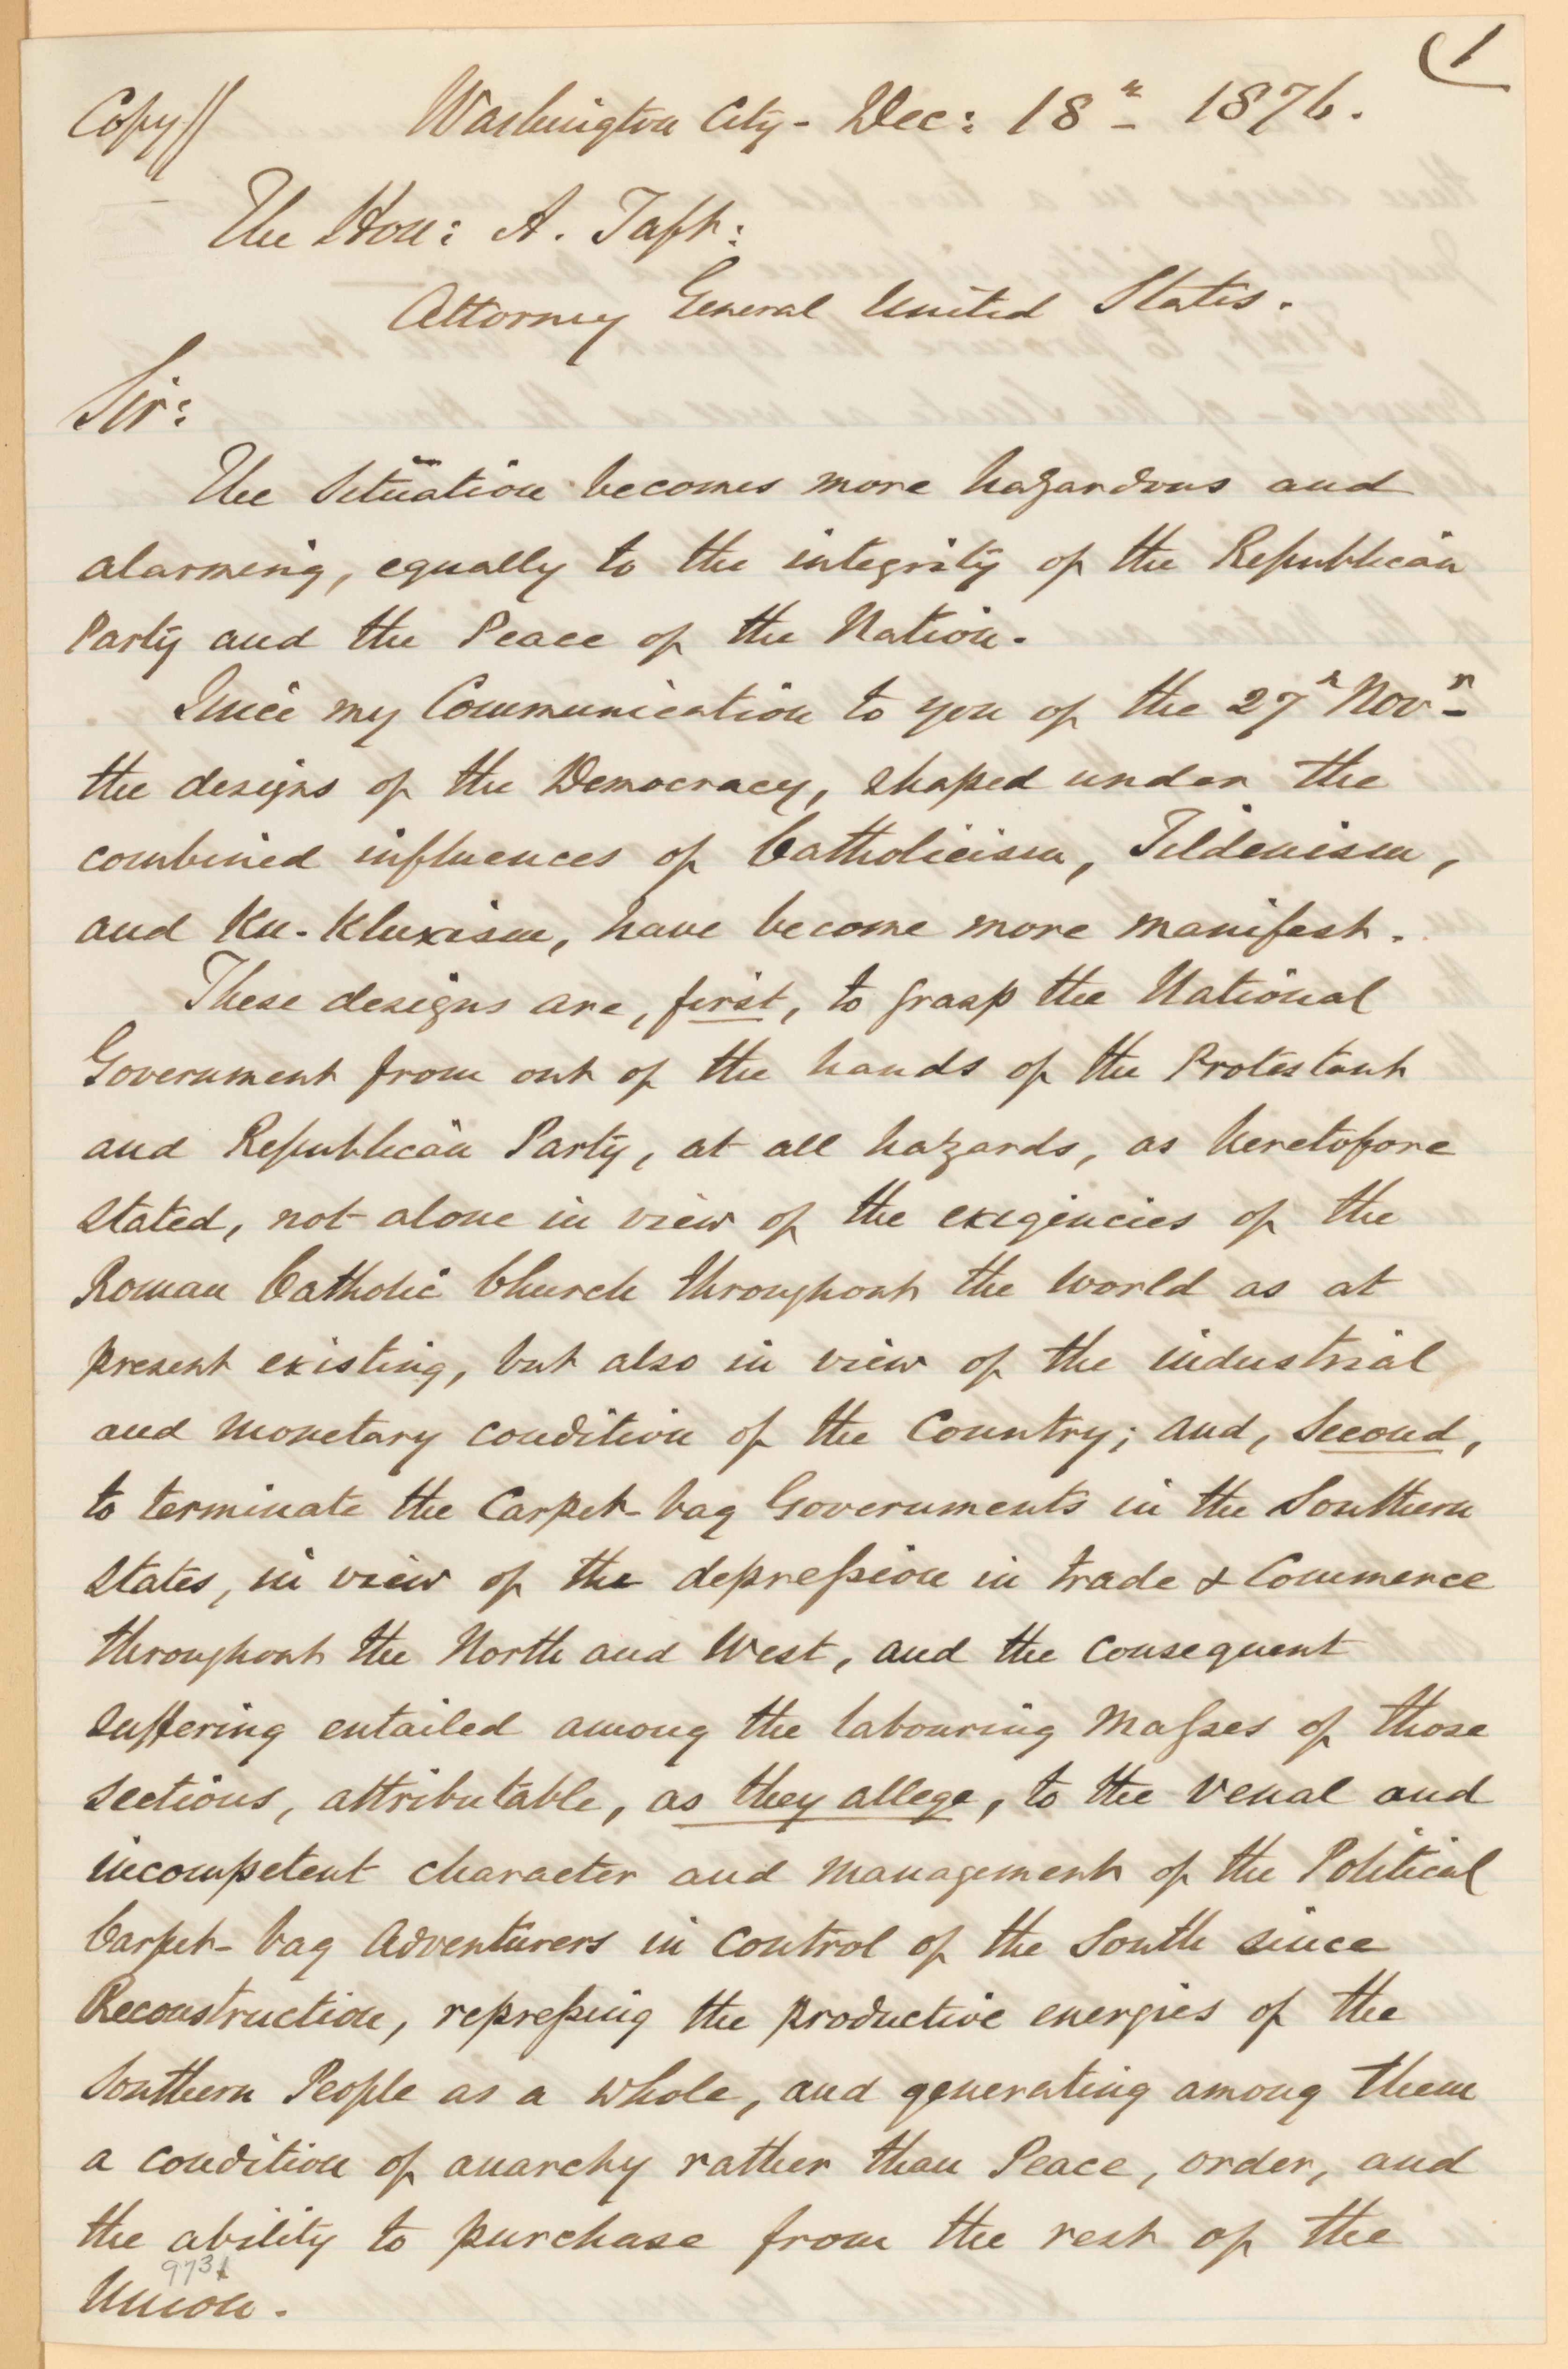 1
Copy//
Washington City - Dec: 18th 1876.
The Hon: A. Taft:
Attorney General United States.
Sir:
The Situation becomes more hazardous and
alarming, equally to the integrity of the Republican
Party and the Peace of the Nation.
Since my Communication to you of the 27th Novr
the designs of the Democracy, shaped under the
combined influences of Catholicism, Tildenism,
and Ku-Kluxism, have become more manifest.
These designs are, first, to grasp the National
Government from out of the hands of the Protestant
and Republican Party, at all hazards, as heretofore
stated, not alone in view of the exigencies of the
Roman Catholic Church throughout the world as at
present existing, but also in view of the industrial
and monetary condition of the Country; and, Second,
to terminate the Carpet-bag Governments in the Southern
States, in view of the depression in trade & Commerce
throughout the North and West, and the consequent
suffering entailed among the labouring Masses of those
sections, attributable, as they allege, to the venal and
incompetent character and management of the Political
Carpet-bag Adventurers in control of the South since
Reconstruction, repressing the productive energies of the
Southern People as a whole, and generating among them
a condition of anarchy rather than Peace, order, and
the ability to purchase from the rest of the
9731
Union.